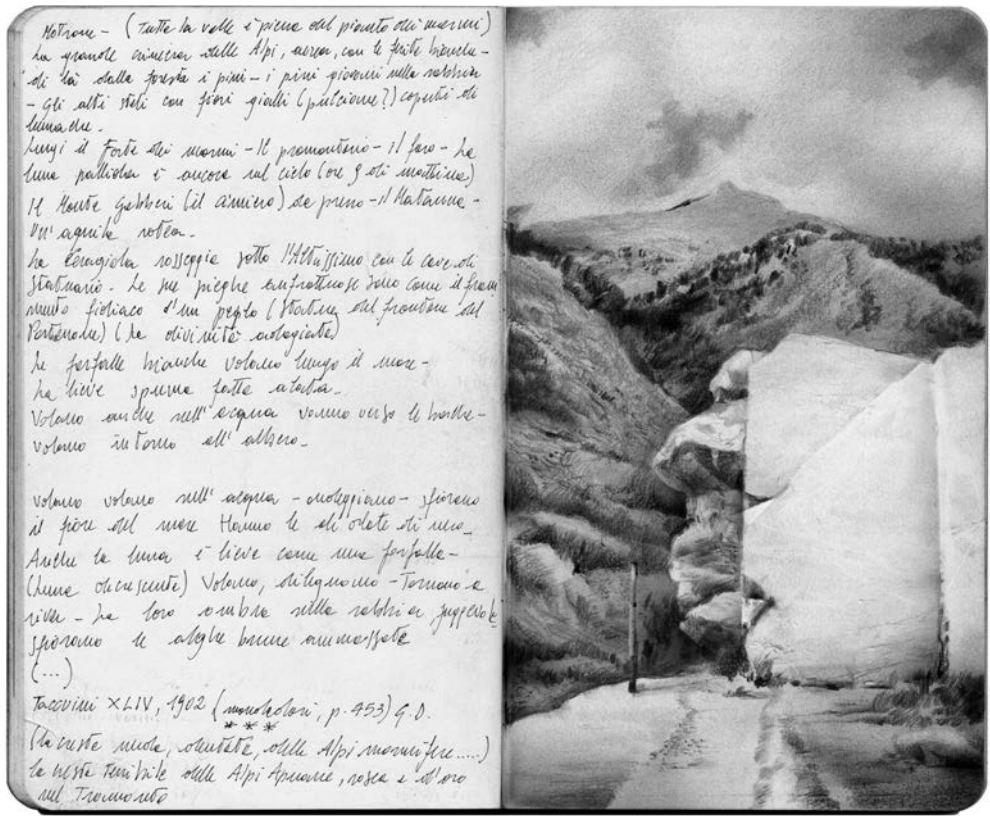 Motrone - (Tutta la valle è piena del pianto dei marmi)
La grande criniera delle Alpi, aerea, con le ferite bianche -
di là dalla foresta i pini - i pini giovani nella sabbia
- Gli alti steli con fiori gialli (pulcione?) coperti di
lumache.
Lungi il Forte dei marmi - Il promontorio - Il faro - La
luna pallida è ancora sul cielo (ore 9 di mattina)
Il Monte Gabberi (il cimiero) da presso - Il Matanna -
Un' aquila rotea.
La Ceragiola rosseggia sotto l'Altissimo con le cave di
Statuario - Le sue pieghe anfrattuose sono come il fram
mento fidiaco d'un peplo (Statue del frontone del
Partenone) (Le divinità adagiate)
Le farfalle bianche volano lungo il mare -
La lieve spuma fatta alata.
Volano anche sull' acqua vanno verso le barche -
volano intorno all' albero -
Volano volano sull' acqua - ondeggiano - sfiorano
il fiore del mare Hanno le ali orlate di nero -
Anche la luna è lieve come una farfalla -
(Luna decrescente) Volano, dileguano - Tornano a
riva - La loro ombra sulla sabbia, fuggevole
sfiorano le alghe brune ammassate
(...)
Taccuini XLIV, 1902 (mondadori, p. 453) G. D.
* * *
(la cresta nuda, dentata, delle Alpi marmifere.....)
la cresta terribile delle Alpi Apuane, rosea e d'oro
nel Tramonto